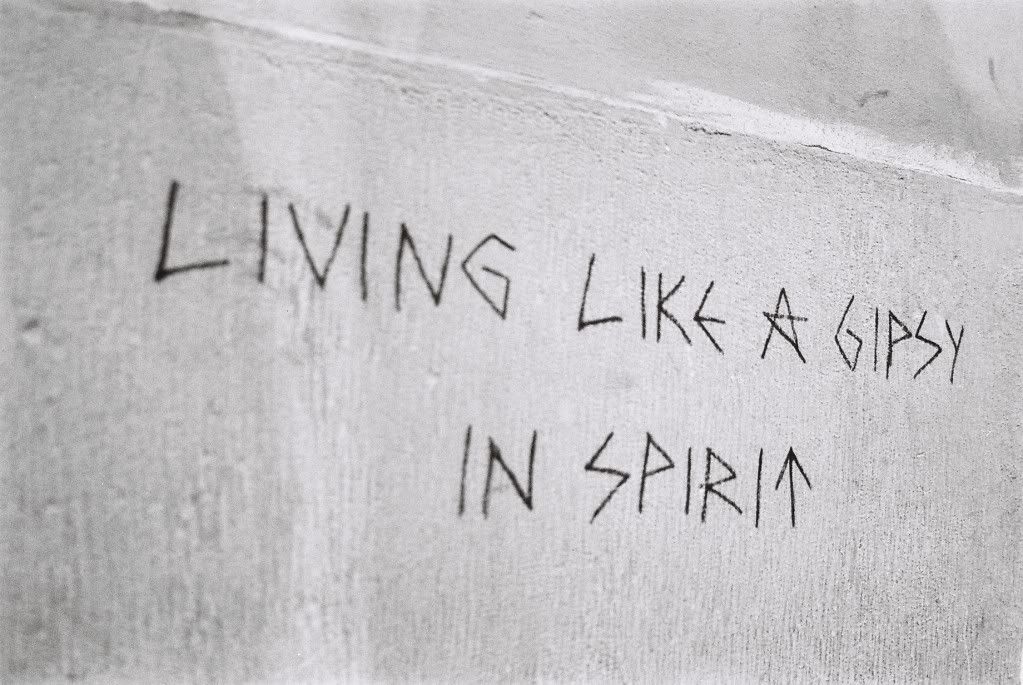 LIVING LIKE A GIPSY
IN SPIRIT